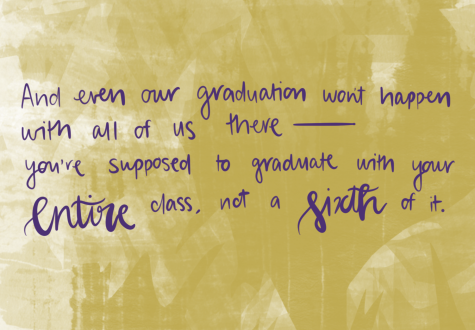 And even our graduation won't happen
with all of us there —
you're supposed to graduate with your
entire class, not a sixth of it.